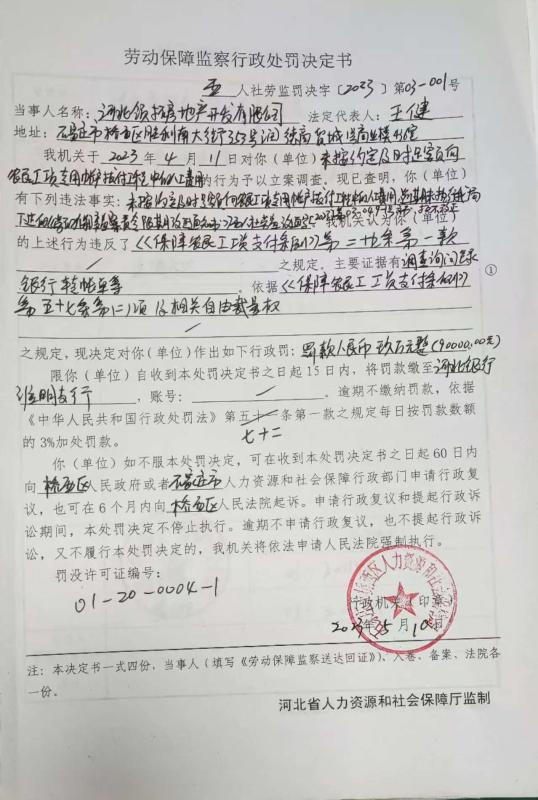 劳动保障监察行政处罚决定书
人社劳监罚决字〔2023〕第03-001号
当事人名称：河北领拓房地产开发有限公司 法定代表人：王健
地址：石家庄市桥西区胜利南大街355号润德商贸城沿商业楼
我机关于2023年4月11日对你（单位）未按约定及时足额向
农民工工资专用账户拨付工程款中的人工费用的行为予以立案调查。现已查明，你（单位）
有下列违法事实：未按约定及时足额向农民工工资专用账户拨付工程款中的人工费用
我机关认为你（单位）
的上述行为违反了《保障农民工工资支付条例》第二十九条第一款
之规定，主要证据有调查询问笔录
银行转帐单等。依据《保障农民工工资支付条例》 ①
第五十七条第（二）项及相关自由裁量权
之规定，现决定对你（单位）作出如下行政罚：罚款人民币玖万元整（90000.00元）
限你（单位）自收到本处罚决定书之日起15日内，将罚款缴至河北银行
维明支行，账号：。逾期不缴纳罚款，依据
《中华人民共和国行政处罚法》第五十一条第一款之规定每日按罚款数额
七十二
的3%加处罚款。
你（单位）如不服本处罚决定，可在收到本处罚决定书之日起60日内
向桥西区人民政府或者石家庄市人力资源和社会保障行政部门申请行政复
议，也可在6个月内向桥西区人民法院起诉。申请行政复议和提起行政诉
讼期间，本处罚决定不停止执行。逾期不申请行政复议，也不提起行政诉
讼，又不履行本处罚决定的，我机关将依法申请人民法院强制执行。
罚没许可证编号：
01-20-0004-1
行政机关（印章）
2023年5月10日
注：本决定书一式四份，当事人（填写《劳动保障监察送达回证》）、入卷、备案、法院各
一份。
河北省人力资源和社会保障厅监制